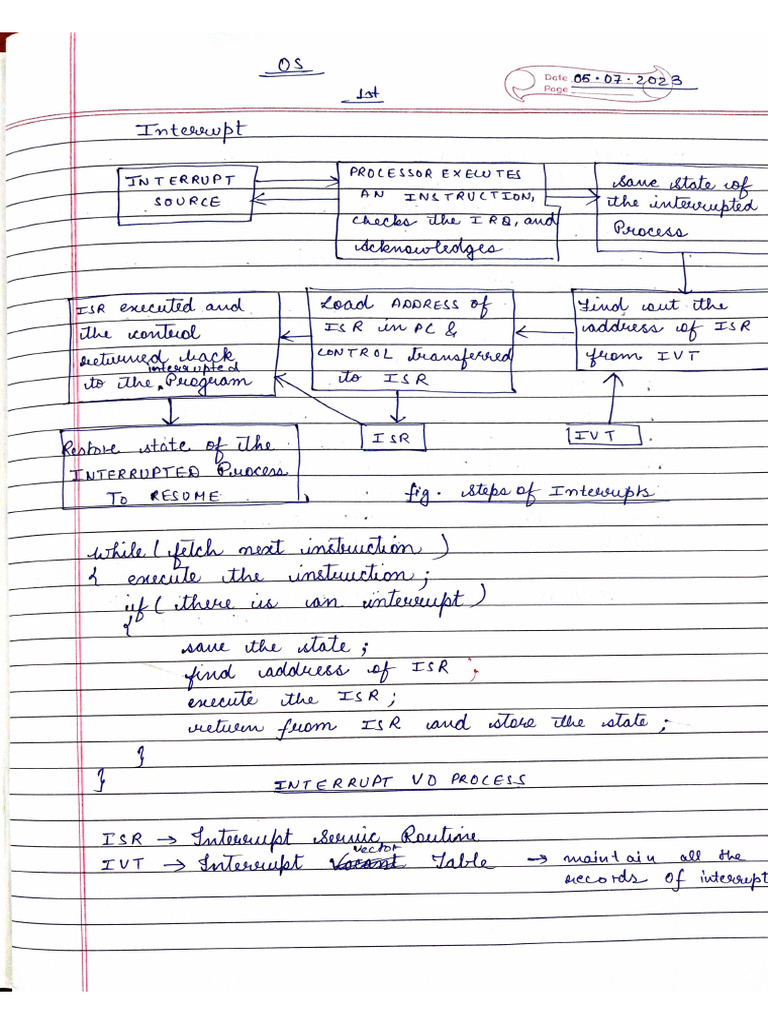 OS
Date 05.07.2023
Page
1st
Interrupt
INTERRUPT
SOURCE
PROCESSOR EXECUTES
AN INSTRUCTION,
checks the IRQ, and
Acknowledges
Save state of
the interrupted
Process
ISR executed and
the control
returned back
interrupted
to the Program
Load ADDRESS of
ISR in PC &
CONTROL transferred
to ISR
Find out the
address of ISR
from IVT
Restore state of the
INTERRUPTED Process
To RESUME
ISR
IVT
fig. steps of Interrupts
while ( fetch next instruction )
{ execute the instruction ;
if ( there is an interrupt )
{
save the state ;
find address of ISR ;
execute the ISR ;
return from ISR and store the state ;
}
}
INTERRUPT I/O PROCESS
ISR → Interrupt Servic Routine
vector
IVT → Interrupt Table → maintain all the
records of interrupt